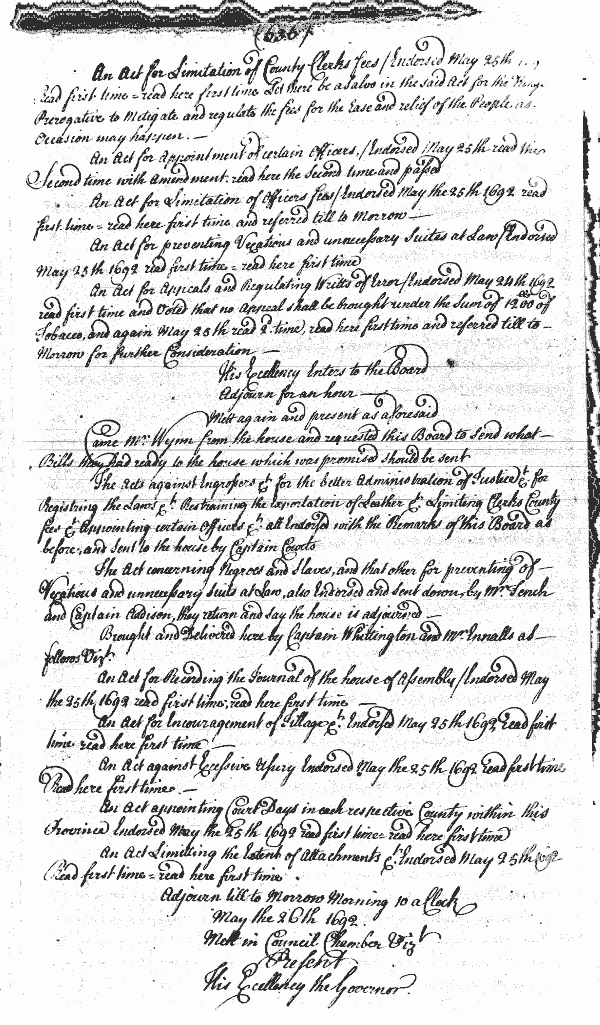 (636)
An Act for Limitation of County Clerks fees / Endorsed May 25th
read first time = read here first time Let there be a salvo in the said Act for the Kings
Prerogative to Mitigate and regulate the fees for the Ease and relief of the People as
Occasion may happen. —
An Act for Appointment of certain Officers. / Endorsed May 25th read the
Second time with Amendment. read here the Second time and passed
An Act for Limitation of Officers fees / Endorsed May the 25th 1692 read
first time = read here first time and referred till to Morrow —
An Act for preventing Vexatious and unnecessary Suites at Law / Endorsed
May 25th 1692 read first time = read here first time
An Act for Appeals and Regulating Writts of Error / Endorsed May 24th 1692
read first time and Voted that no Appeal shall be brought under the Sum of 1200 of
Tobacco, and again May 25th read 2d time, read here first time and referred till to —
Morrow for further Consideration —
His Excellency Enters to the Board
Adjourn for an hour —
Mett again and present as aforesaid
Came Mr. Wynn from the house and requested this Board to Send what —
Bills they had ready to the house which was promised should be sent
The Acts against Ingrossers &c. for the better Administration of Justice &c. for
Registring the Laws &c. Restraining the exportation of Leather &c. Limiting Clerks County
fees &c. Appointing certain Officers &c. all Endorsed with the Remarks of this Board as
before, and Sent to the house by Captain Courts
The Act concerning Negroes and Slaves, and that other for preventing of —
Vexatious and unnecessary Suits at Law, also Endorsed and sent down, by Mr. Tench
and Captain Addison, they return and say the house is adjourned —
Brought and Delivered here by Captain Whittington and Mr. Ennalls as —
follows Vizt.
An Act for Recording the Journal of the house of Assembly / Endorsed May
the 25th, 1692 read first time, read here first time —
An Act for Encouragement of Tillage &c. Endorsed May 25th 1692 read first
time read here first time —
An Act against Excessive Usury Endorsed May the 25th 1692 read first time
Read here first time. —
An Act appointing Court Days in each respective County within this
Province Endorsed May the 25th 1692 read first time = read here first time
An Act Limitting the Extent of Attachments &c. Endorsed May 25th 1692
Read first time = read here first time.
Adjourn till to Morrow Morning 10 a Clock
May the 26th 1692.
Mett in Council Chamber Vizt
Present
His Excellency the Governor.